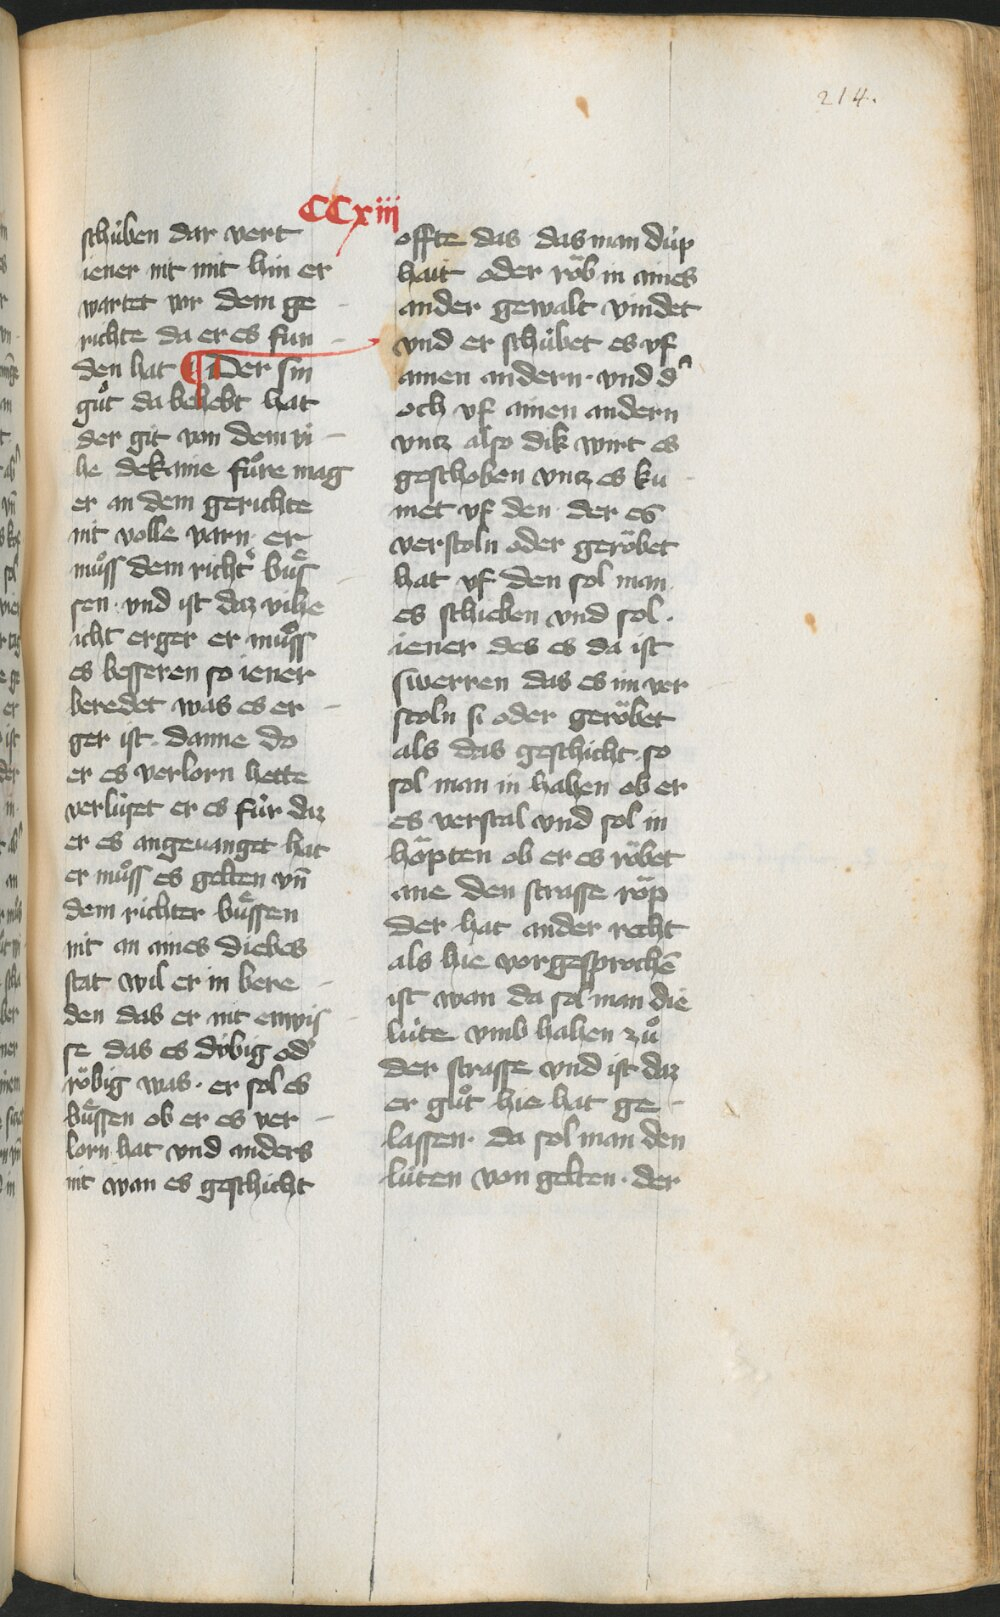 214.
CCxiii
schúben dar vert
iener nit mit hin er
wartet vor dem ge
richte da er es fun
den hat ¶ Der sin
gůt da behebt hat
der git von dem vi
he dekaine fůre mag
er an dem gerichte
nit volle varn. er
můss dem richter bůs
sen. vnd ist daz vihe
icht erger er můss
es besseren so iener
beredet was es er
ger ist. danne do
er es verlorn hette
verlúset er es fúr daz
er es angeuanget hat
er můss es gelten vn̄
dem richter bůssen
nit an aines diebes
stat wil er in bere
den das er nit enwis
se das es dúbig od'
röbig was. er sol es
bůssen ob er es ver
lorn hat vnd anders
nit wan es geschicht
offte das das man dúp
hait oder röb in aines
ander gewalt vindet
vnd er schúbet es vf
ainen andern. vnd d'
och vf ainen andern
vntz also dik wirt es
geschoben vntz es ku
met vf den der es
verstoln oder geröbet
hat vf den sol man
es schieben vnd sol.
iener des es da ist
swerren das es im ver
stoln si oder geröbet
als das geschicht. so
sol man in hahen ob er
es verstal vnd sol in
höpten ob er es röbet
ane den strasse röp
der hat ander recht
als hie vorgesprochē
ist wan da sol man die
lúte vmb hahen zů
der strasse vnd ist daz
er gůt hie hat ge
lassen. da sol man den
lúten von gelten. der